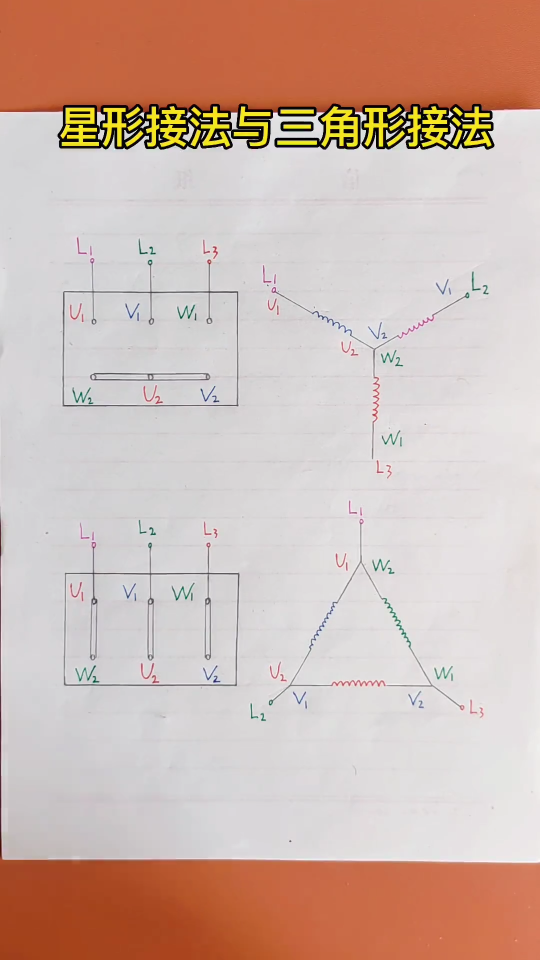 星形接法与三角形接法
L1 L2 L3
U1 V1 W1
W2 U2 V2
L1 U1 V1 L2
U2 V2 W2
W1
L3
L1 L2 L3
U1 V1 W1
W2 U2 V2
L1
U1 W2
U2 W1
L2 V1 V2 L3